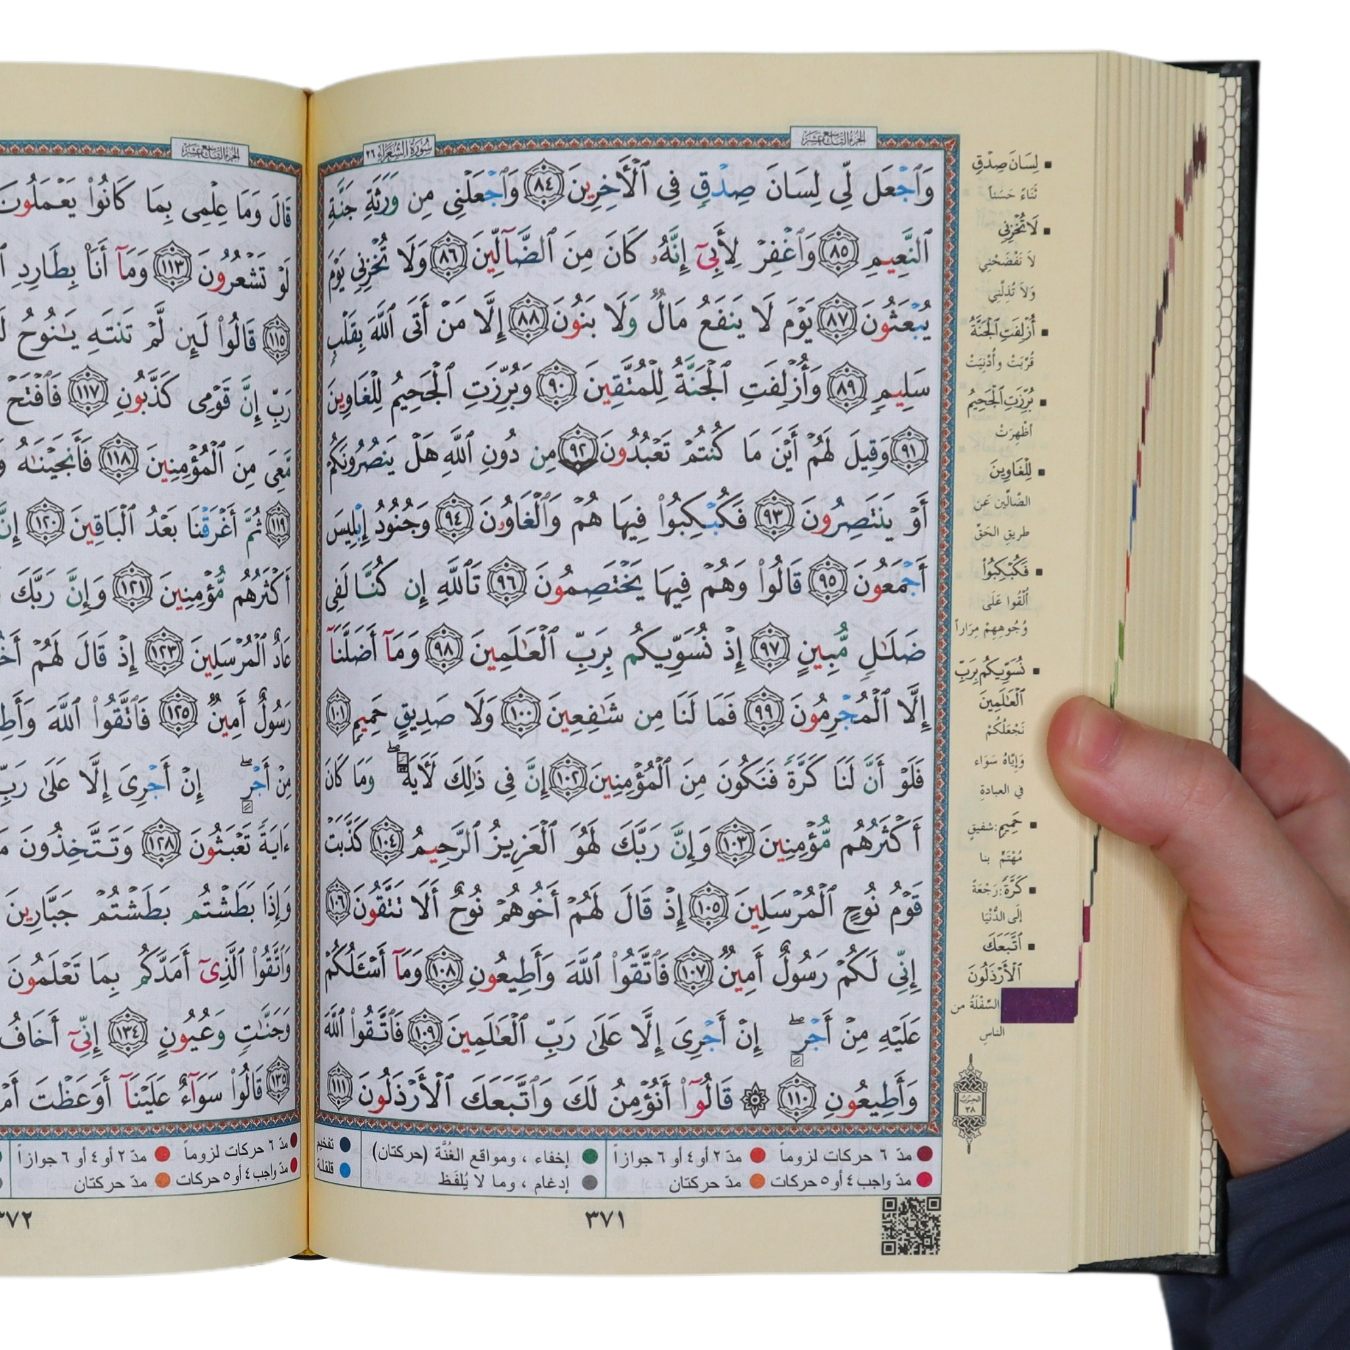 الجزء التاسع عشر
سورة الشعراء ٢٦
وَٱجْعَل لِّى لِسَانَ صِدْقٍ فِى ٱلْـَٔاخِرِينَ ٨٤ وَٱجْعَلْنِى مِن وَرَثَةِ جَنَّةِ
ٱلنَّعِيمِ ٨٥ وَٱغْفِرْ لِأَبِىٓ إِنَّهُۥ كَانَ مِنَ ٱلضَّآلِّينَ ٨٦ وَلَا تُخْزِنِى يَوْمَ
يُبْعَثُونَ ٨٧ يَوْمَ لَا يَنفَعُ مَالٌ وَلَا بَنُونَ ٨٨ إِلَّا مَنْ أَتَى ٱللَّهَ بِقَلْبٍ
سَلِيمٍ ٨٩ وَأُزْلِفَتِ ٱلْجَنَّةُ لِلْمُتَّقِينَ ٩٠ وَبُرِّزَتِ ٱلْجَحِيمُ لِلْغَاوِينَ
٩١ وَقِيلَ لَهُمْ أَيْنَ مَا كُنتُمْ تَعْبُدُونَ ٩٢ مِن دُونِ ٱللَّهِ هَلْ يَنصُرُونَكُمْ
أَوْ يَنتَصِرُونَ ٩٣ فَكُبْكِبُوا۟ فِيهَا هُمْ وَٱلْغَاوُۥنَ ٩٤ وَجُنُودُ إِبْلِيسَ
أَجْمَعُونَ ٩٥ قَالُوا۟ وَهُمْ فِيهَا يَخْتَصِمُونَ ٩٦ تَٱللَّهِ إِن كُنَّا لَفِى
ضَلَـٰلٍ مُّبِينٍ ٩٧ إِذْ نُسَوِّيكُم بِرَبِّ ٱلْعَـٰلَمِينَ ٩٨ وَمَآ أَضَلَّنَآ
إِلَّا ٱلْمُجْرِمُونَ ٩٩ فَمَا لَنَا مِن شَـٰفِعِينَ ١٠٠ وَلَا صَدِيقٍ حَمِيمٍ ١٠١
فَلَوْ أَنَّ لَنَا كَرَّةً فَنَكُونَ مِنَ ٱلْمُؤْمِنِينَ ١٠٢ إِنَّ فِى ذَٰلِكَ لَـَٔايَةً ۖ وَمَا كَانَ
أَكْثَرُهُم مُّؤْمِنِينَ ١٠٣ وَإِنَّ رَبَّكَ لَهُوَ ٱلْعَزِيزُ ٱلرَّحِيمُ ١٠٤ كَذَّبَتْ
قَوْمُ نُوحٍ ٱلْمُرْسَلِينَ ١٠٥ إِذْ قَالَ لَهُمْ أَخُوهُمْ نُوحٌ أَلَا تَتَّقُونَ ١٠٦
إِنِّى لَكُمْ رَسُولٌ أَمِينٌ ١٠٧ فَٱتَّقُوا۟ ٱللَّهَ وَأَطِيعُونِ ١٠٨ وَمَآ أَسْـَٔلُكُمْ
عَلَيْهِ مِنْ أَجْرٍ ۖ إِنْ أَجْرِىَ إِلَّا عَلَىٰ رَبِّ ٱلْعَـٰلَمِينَ ١٠٩ فَٱتَّقُوا۟ ٱللَّهَ
وَأَطِيعُونِ ١١٠ ۞ قَالُوٓا۟ أَنُؤْمِنُ لَكَ وَٱتَّبَعَكَ ٱلْأَرْذَلُونَ ١١١
مدّ ٦ حركات لزوماً مدّ ٢ أو ٤ أو ٦ جوازاً إخفاء ، ومواقع الغُنَّة (حركتان) تفخيم
مدّ واجب ٤ أو ٥ حركات مدّ حركتان إدغام ، وما لا يُلفَظ قلقلة
٣٧١
لِسَانَ صِدْقٍ
ثَنَاءً حَسَناً
لَا تُخْزِنِي
لاَ تَفْضَحْنِي
وَلاَ تُذِلَّنِي
أُزْلِفَتِ ٱلْجَنَّةُ
قُرِّبَتْ وأُدْنِيَتْ
بُرِّزَتِ ٱلْجَحِيمُ
أُظْهِرَتْ
لِلْغَاوِينَ
الضَّالِّين عَن
طريقِ الحَقِّ
فَكُبْكِبُوا۟
أُلْقُوا عَلَى
وُجُوهِهِمْ مِرَاراً
نُسَوِّيكُم بِرَبِّ
ٱلْعَـٰلَمِينَ
نَجْعَلُكُمْ
وَإِيَّاهُ سَوَاء
في العبادةِ
حَمِيمٍ: شفيقٍ
مُهْتَمٍّ بنا
كَرَّةً: رَجْعَةً
إلَى الدُّنْيَا
ٱتَّبَعَكَ
ٱلْأَرْذَلُونَ
السَّفَلَةُ من
الناسِ
الحزب
٣٨
الجزء التاسع عشر
قَالَ وَمَا عِلْمِى بِمَا كَانُوا۟ يَعْمَلُونَ
لَوْ تَشْعُرُونَ ١١٣ وَمَآ أَنَا۠ بِطَارِدِ
١١٥ قَالُوا۟ لَئِن لَّمْ تَنتَهِ يَـٰنُوحُ
رَبِّ إِنَّ قَوْمِى كَذَّبُونِ ١١٧ فَٱفْتَحْ
مَّعِىَ مِنَ ٱلْمُؤْمِنِينَ ١١٨ فَأَنجَيْنَـٰهُ
١١٩ ثُمَّ أَغْرَقْنَا بَعْدُ ٱلْبَاقِينَ ١٢٠ إِنَّ
أَكْثَرُهُم مُّؤْمِنِينَ ١٢١ وَإِنَّ رَبَّكَ
عَادٌ ٱلْمُرْسَلِينَ ١٢٣ إِذْ قَالَ لَهُمْ
رَسُولٌ أَمِينٌ ١٢٥ فَٱتَّقُوا۟ ٱللَّهَ
مِنْ أَجْرٍ ۖ إِنْ أَجْرِىَ إِلَّا عَلَىٰ رَبِّ
ءَايَةً تَعْبَثُونَ ١٢٨ وَتَتَّخِذُونَ
وَإِذَا بَطَشْتُم بَطَشْتُمْ جَبَّارِينَ
وَٱتَّقُوا۟ ٱلَّذِىٓ أَمَدَّكُم بِمَا تَعْلَمُونَ
وَجَنَّـٰتٍ وَعُيُونٍ ١٣٤ إِنِّىٓ أَخَافُ
١٣٥ قَالُوا۟ سَوَآءٌ عَلَيْنَآ أَوَعَظْتَ
مدّ ٦ حركات لزوماً مدّ ٢ أو ٤ أو ٦ جوازاً
مدّ واجب ٤ أو ٥ حركات مدّ حركتان
٣٧٢